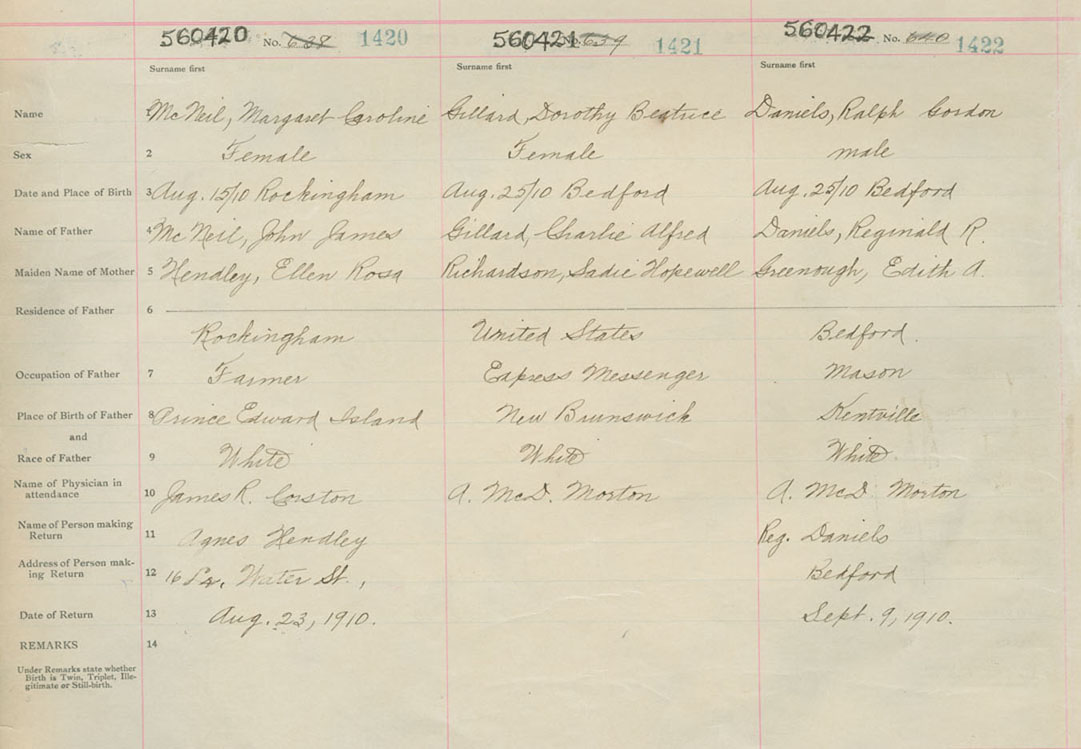 560420 No. 638 1420 560421 No. 639 1421 560422 No. 640 1422
Surname first Surname first Surname first
Name 1 McNeil, Margaret Caroline Gillard, Dorothy Beatrice Daniels, Ralph Gordon
Sex 2 Female Female male
Date and Place of Birth 3 Aug. 15/10 Rockingham Aug. 25/10 Bedford Aug. 25/10 Bedford
Name of Father 4 McNeil, John James Gillard, Charlie Alfred Daniels, Reginald R.
Maiden Name of Mother 5 Hendley, Ellen Rosa Richardson, Sadie Hopewell Greenough, Edith A.
Residence of Father 6
Rockingham United States Bedford.
Occupation of Father 7 Farmer Express Messenger Mason
Place of Birth of Father 8 Prince Edward Island New Brunswick Kentville
and
Race of Father 9 White White White
Name of Physician in
attendance 10 James R. Corston A. McD. Morton A. McD. Morton
Name of Person making
Return 11 Agnes Hendley Reg. Daniels
Address of Person mak-
ing Return 12 16 Water St., Bedford
Date of Return 13 Aug. 23, 1910. Sept. 9, 1910.
REMARKS 14
Under Remarks state whether
Birth is Twin, Triplet, Ille-
gitimate or Still-birth.